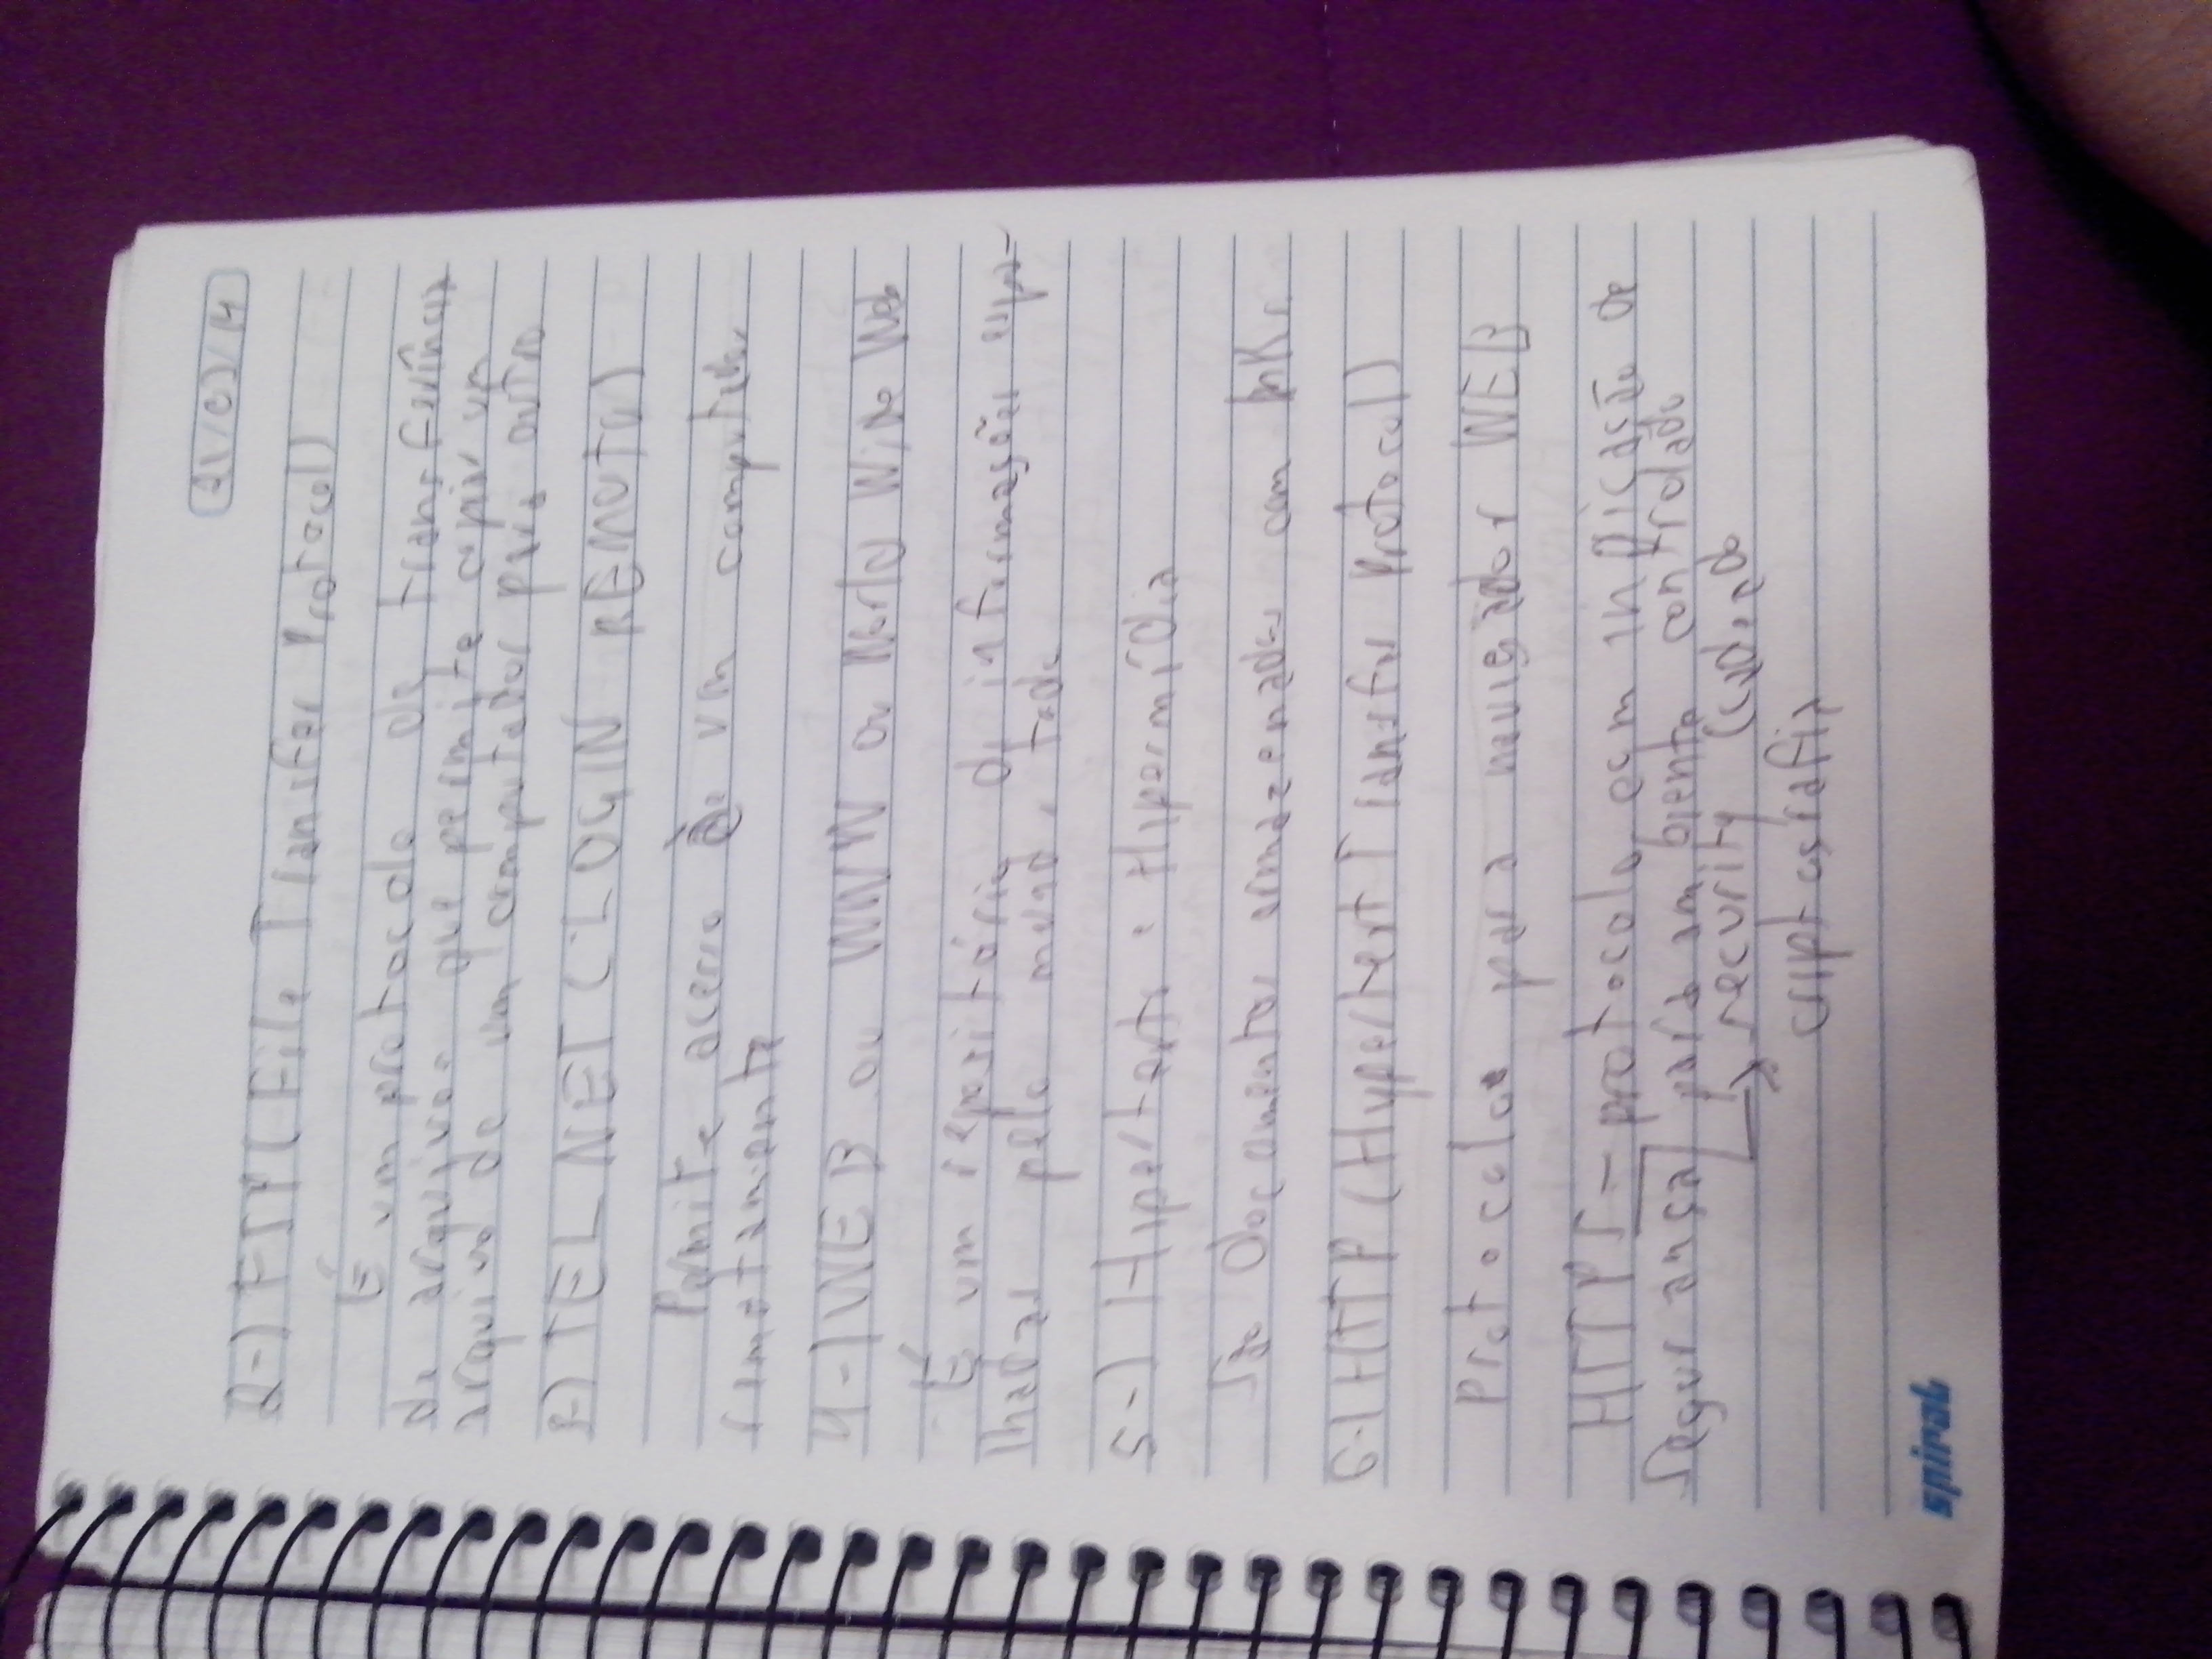 21/02/14
2-) FTP (File Transfer Protocol)
É um protocolo de transferência
de arquivos que permite copiar um
arquivo de um computador para outro
3-) TELNET (LOGIN REMOTO)
Permite acesso a um computador
remotamente
4-) WEB ou WWW ou World Wide Web
É um repositório de informações espa-
lhadas pelo mundo todo
5-) Hipertexto e Hipermídia
São Documentos armazenados com links
6-) HTTP (Hypertext Transfer Protocol)
Protocolo para navegador WEB
HTTPS - protocolo com indicação de
segurança para ambiente controlado
security (cadeado
criptografia
spiral